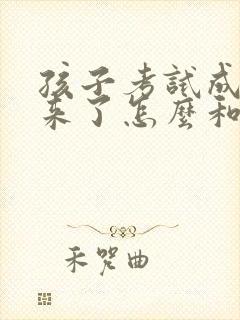 孩子考試成
來了怎麼和
禾哭曲